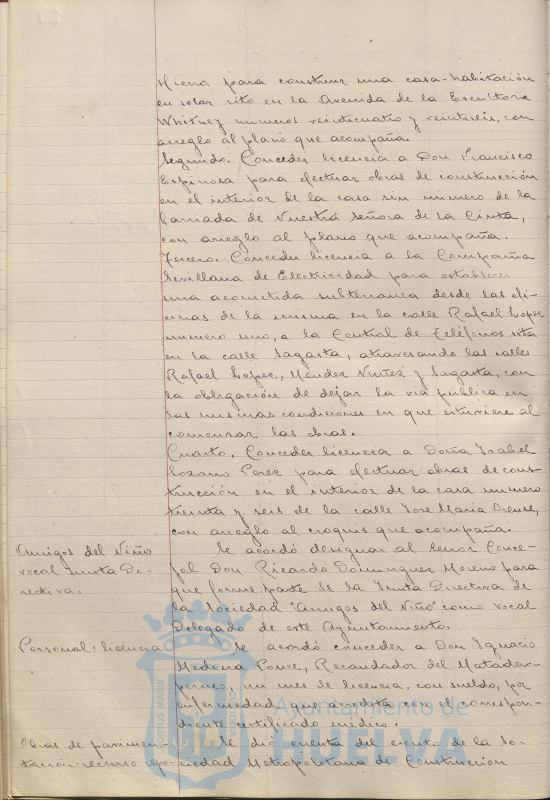 Hierro para construir una casa-habitación
en solar sito en la Avenida de la Escultora
Whitney numeros veinticuatro y veintiseis, con
arreglo al plano que acompaña.
Segundo. Conceder licencia a Don Francisco
Espinosa para efectuar obras de construcción
en el interior de la casa sin numero de la
barriada de Nuestra Señora de la Cinta,
con arreglo al plano que acompaña.
Tercero. Conceder licencia a la Compañia
Sevillana de Electricidad para establecer
una acometida subterranea desde las ofi-
cinas de la misma en la calle Rafael Lopez
numero uno, a la Central de Teléfonos sita
en la calle Sagasta, atravesando las calles
Rafael Lopez, Méndez Nuñez y Sagasta, con
la obligación de dejar la via pública en
las mismas condiciones en que estuviere al
comenzar las obras.
Cuarto. Conceder licencia a Doña Isabel
Lozano Perez para efectuar obras de cons-
trucción en el interior de la casa numero
treinta y seis de la calle Jose Maria Orense,
con arreglo al croquis que acompaña.
Amigos del Niño
vocal Junta Di-
rectiva.
Se acordó designar al Señor Conce-
jal Don Ricardo Dominguez Moreno para
que forme parte de la Junta Directiva de
la Sociedad "Amigos del Niño" como vocal
Delegado de este Ayuntamiento.
Personal: licencia
Se acordó conceder a Don Ignacio
Medina Ponce, Recaudador del Matadero-
, un mes de licencia, con sueldo, por
enfermedad que acredita con el correspon-
diente certificado médico.
Obras de pavimen-
tación: recurso repo-
Se dió cuenta del escrito de la So-
ciedad Metropolitana de Construcción
PORTUS MARIS
Ayuntamiento de
HUELVA